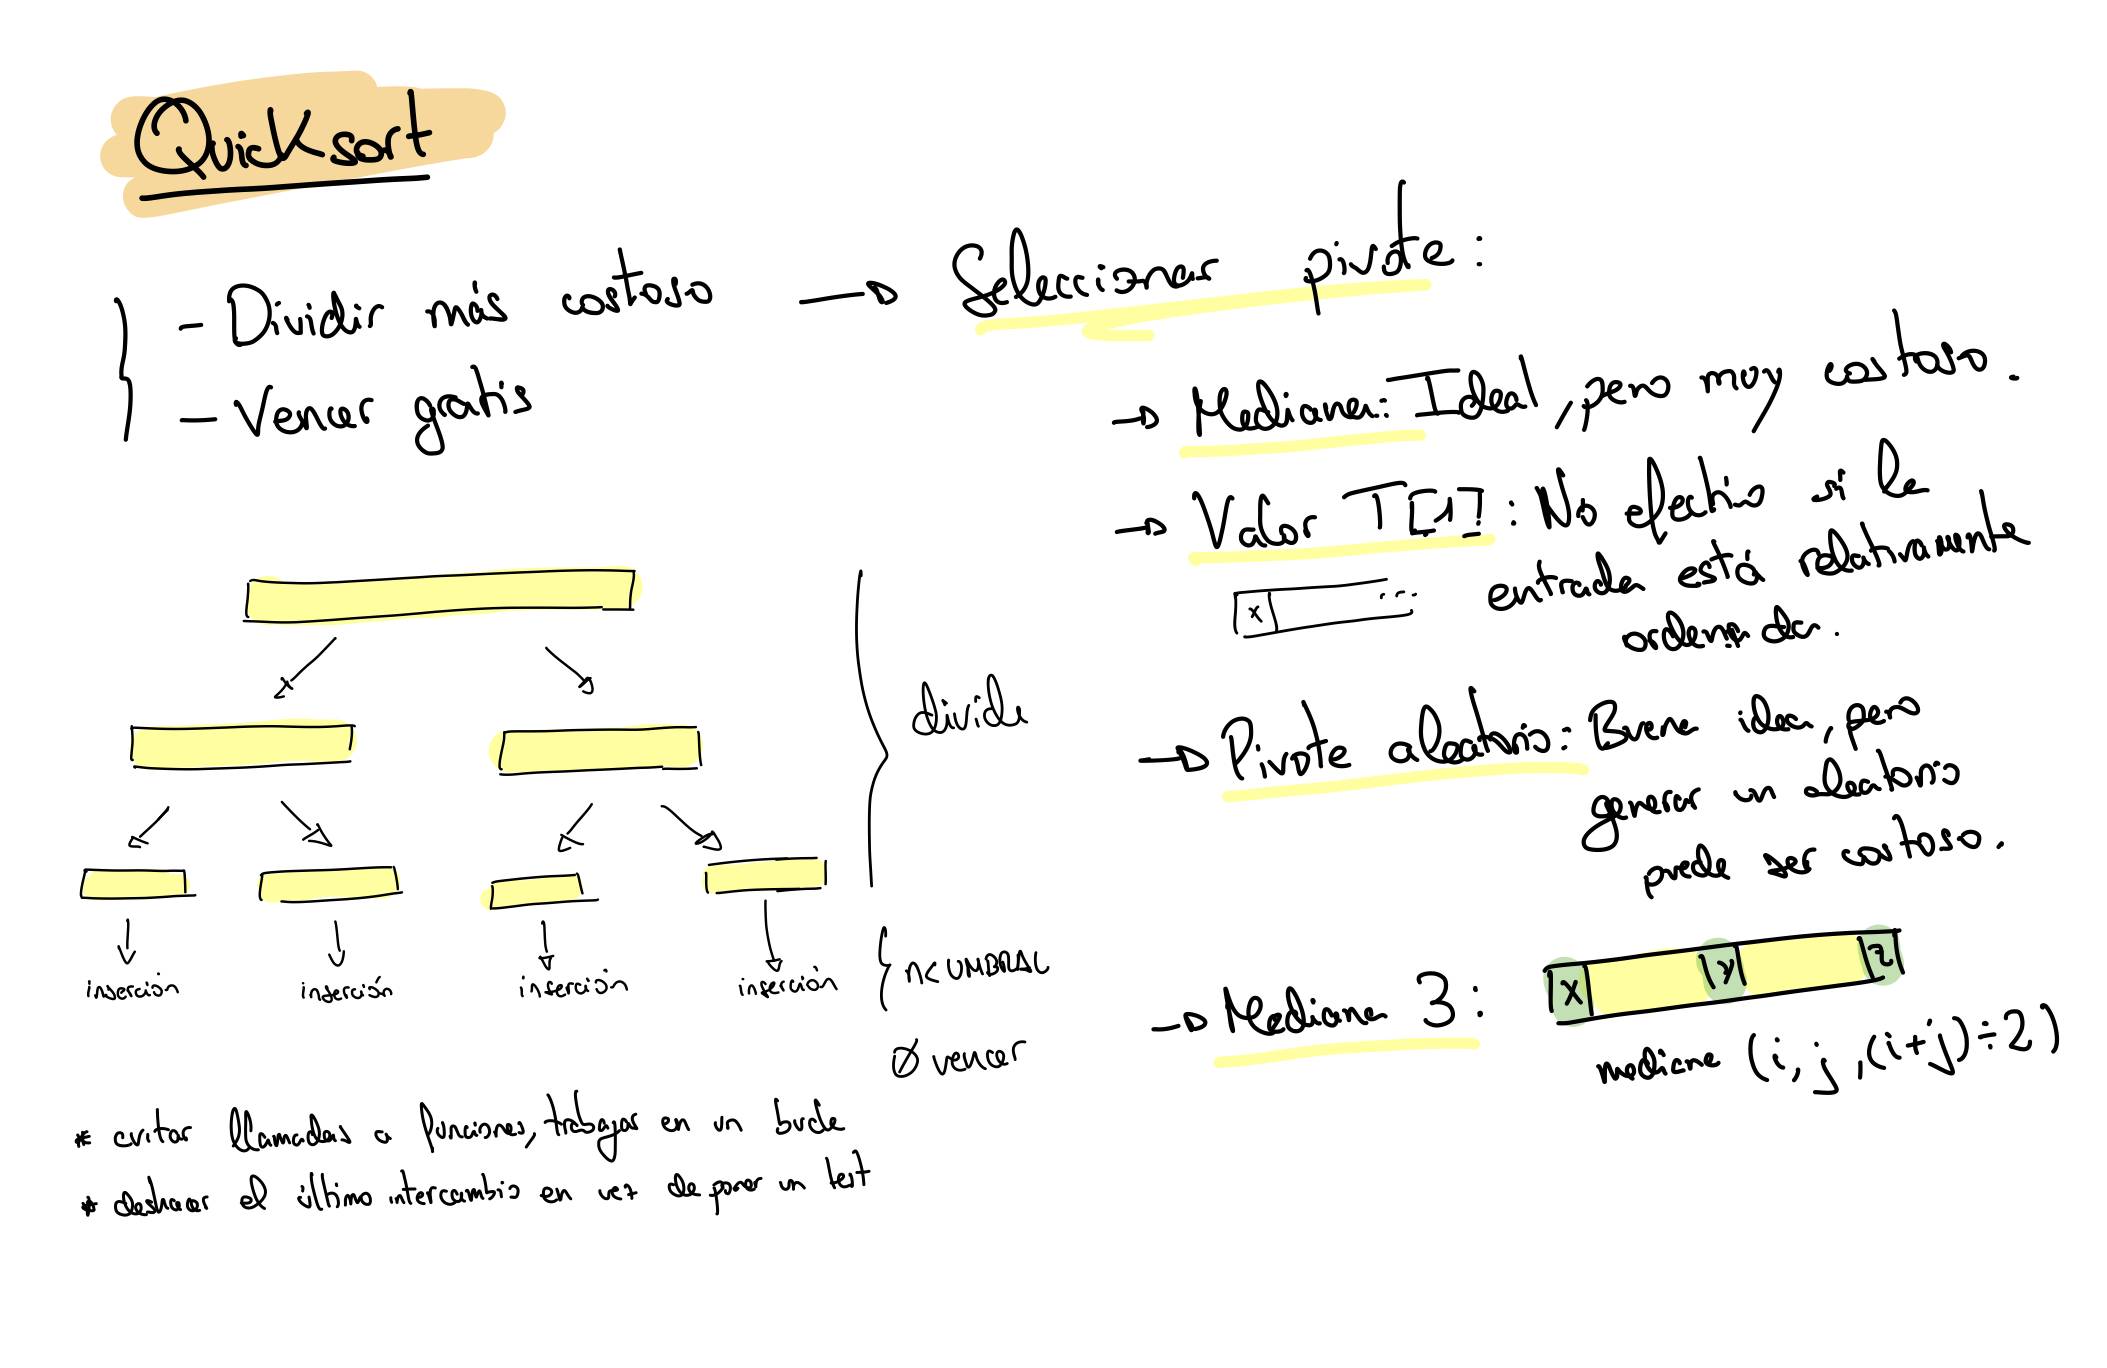 Quicksort
- Dividir más costoso → Seleccionar pivote:
- Vencer gratis
→ Mediana: Ideal, pero muy costoso.
→ Valor T[1]: No efectivo si la
entrada está relativamente
ordenada.
x ...
→ Pivote aleatorio: Buena idea, pero
generar un aleatorio
puede ser costoso.
→ Mediana 3:
x y z
mediana (i, j, (i+j)÷2)
divide
inserción inserción inserción inserción
n< UMBRAL
Ø vencer
* evitar llamadas a funciones, trabajar en un bucle
* deshacer el último intercambio en vez de poner un test